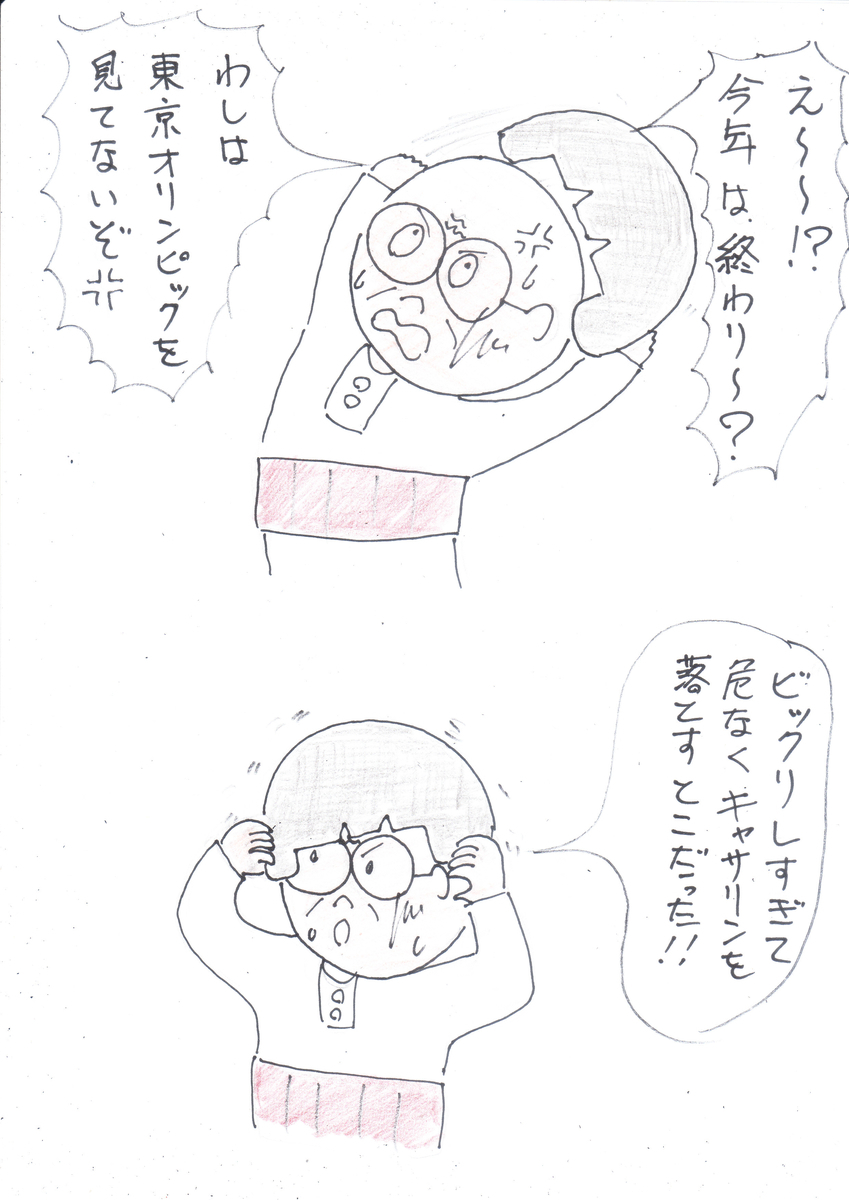 え〜〜!?
今年は、終わり〜?
わしは
東京オリンピックを
見てないぞ
ビックリしすぎて
危なくキャサリンを
落てすとこだった!!